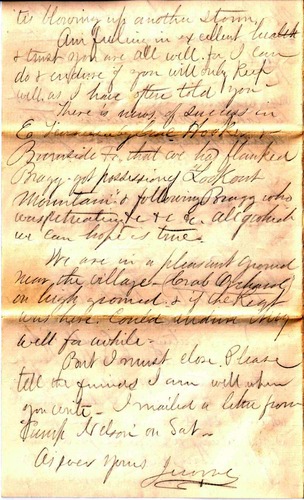 is blowing up another storm.
Am feeling in excellent health
& trust you are all well, for I can
do & endure if you will only keep
well, as I have often told you -
There is news of success in
E. Tennessee Hooker
Burnside &c, that we had flanked
Bragg - got possession of Lookout
Mountain & following Bragg who
was retreating &c &c. all of which
we can hope is true.
We are in a pleasant ground
near the village - Crab Orchard
on high ground, & if the Regt
was here could endure very
well for awhile -
But I must close. Please
tell the friends I am well when
you write - I mailed a letter from
Camp Nelson on Sat -
As ever yours
Jerome